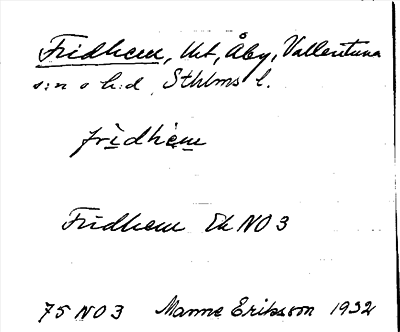 Fridhem, lht, Åby, Vallentuna
s:n o h:d, Sthlms l.
frìdhèm
Fridhem Ek NO 3
75 NO 3 Manne Eriksson 1932